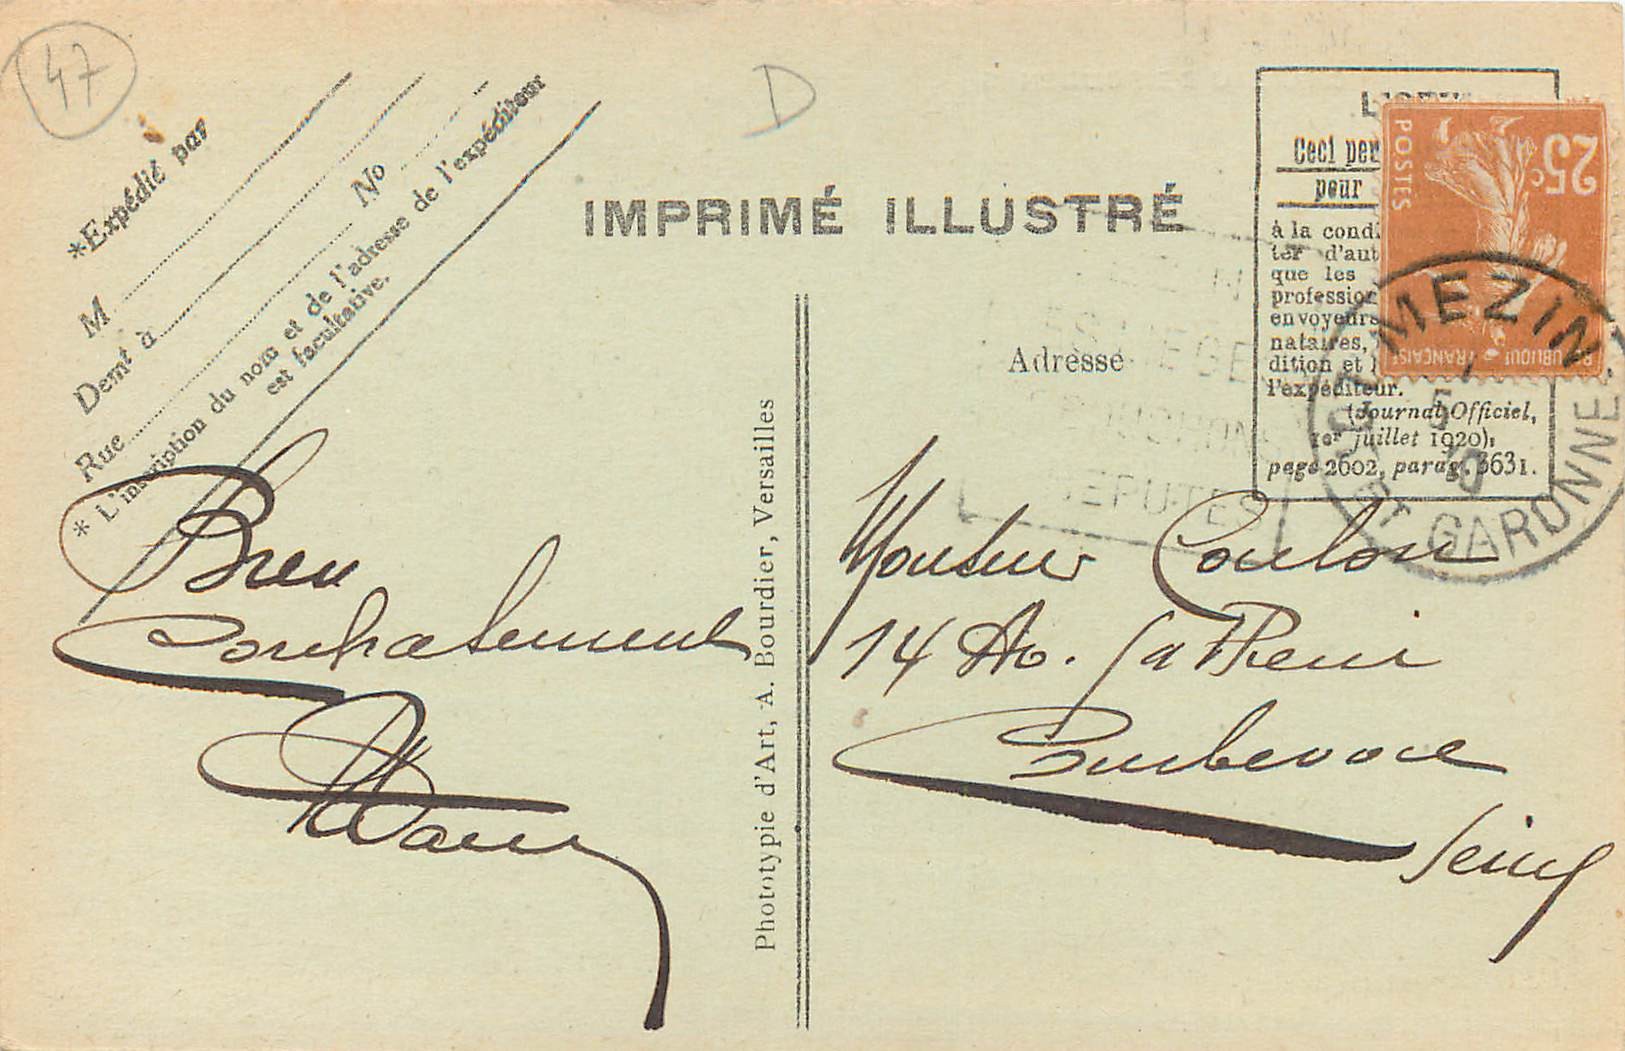 47
D
*Expédié par
M
Demt à
N°
Rue
* L'inscription du nom et de l'adresse de l'expéditeur
est facultative.
IMPRIMÉ ILLUSTRÉ
Adresse
Ceci per
pour
à la cond
ter d'aut
que les
profession
envoyeurs
nataires,
dition et
l'expéditeur.
(Journal Officiel,
1er juillet 1920),
page 2002, parag. 3631.
25c
POSTES
RÉPUBLIQUE FRANÇAISE
MEZIN
5
10
LOT ET GARONNE
Phototypie d'Art, A. Bourdier, Versailles
Bien
Monsieur Coulon
14 Av.
Courbevoie
Seine